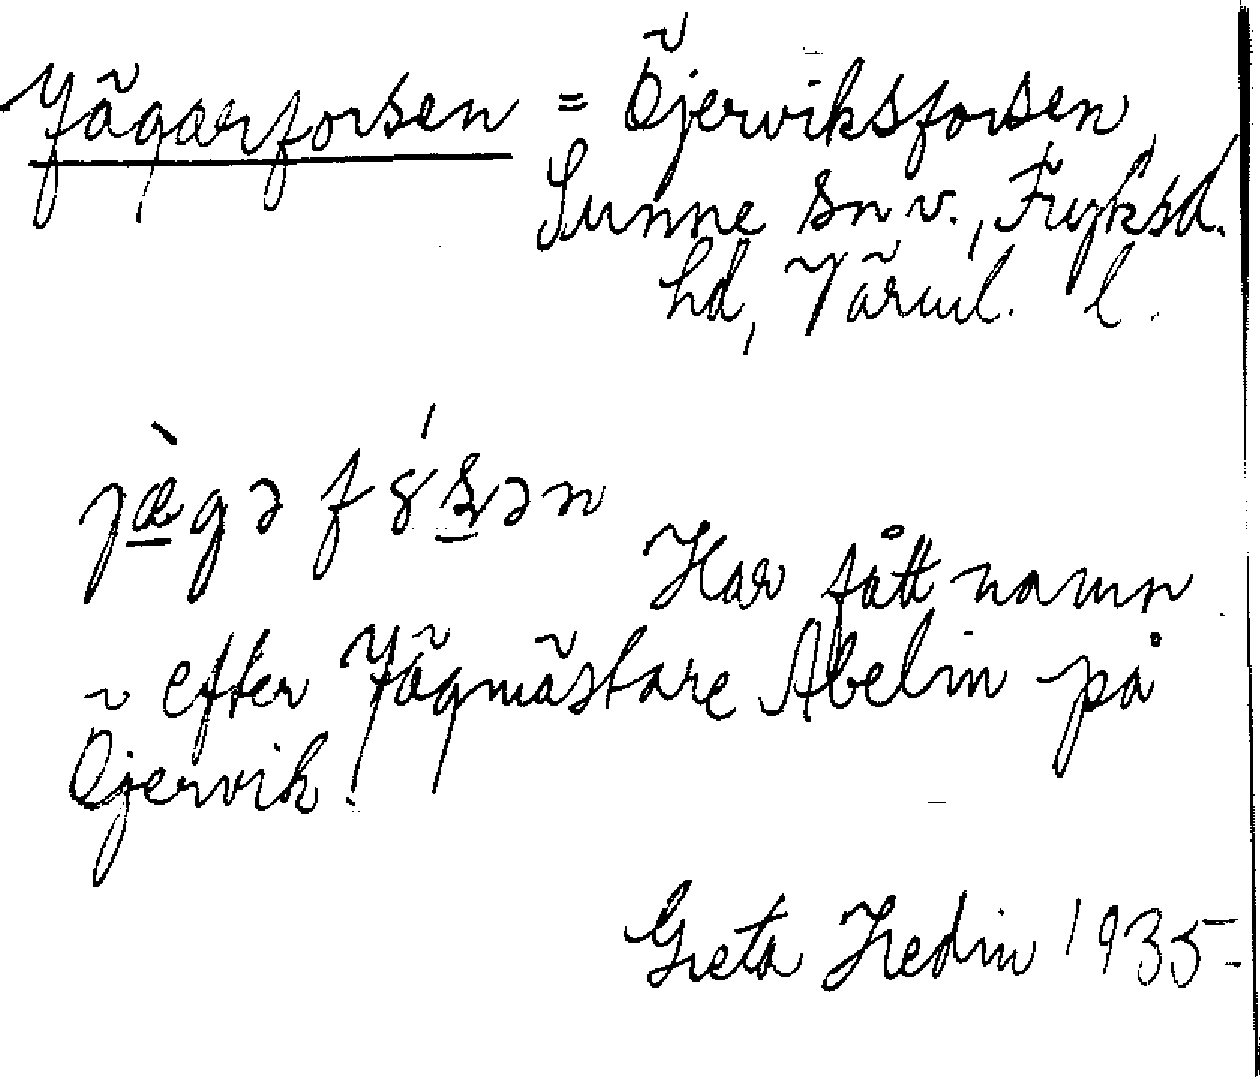 Jägarforsen = Öjerviksforsen
Sunne sn v., Fryksd.
hd, Värml. l.
jæ̀gə fó̱sən
Har fått namn
efter Jägmästare Abelin på
Öjervik.
Greta Hedin 1935.